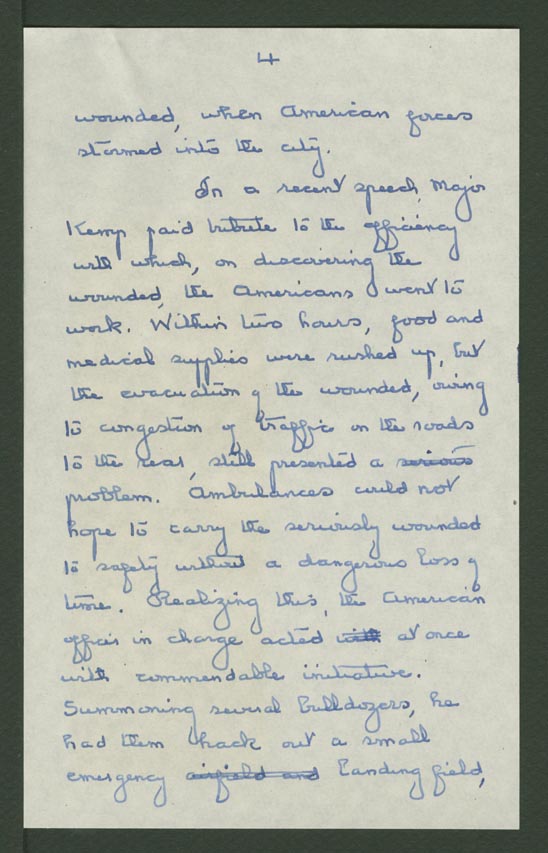 4
wounded, when American forces
stormed into the city.
In a recent speech, Major
Kemp paid tribute to the efficiency
with which, on discovering the
wounded, the Americans went to
work. Within two hours, food and
medical supplies were rushed up, but
the evacuation of the wounded, owing
to congestion of traffic on the roads
to the rear, still presented a serious
problem. Ambulances could not
hope to carry the seriously wounded
to safety without a dangerous loss of
time. Realizing this, the American
officer in charge acted with at once
with commendable initiative.
Summoning several bulldozers, he
had them hack out a small
emergency airfield and landing field,